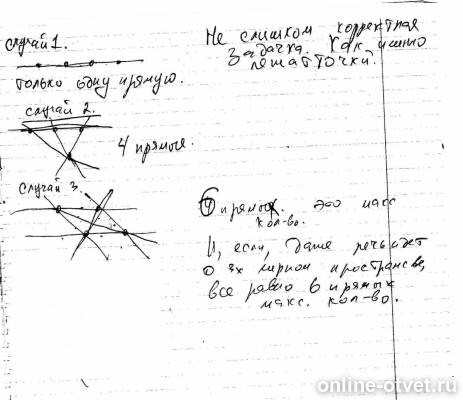 случай 1.
только одну прямую.
случай 2.
4 прямые.
случай 3.
Не слишком корректная
задачка. Как именно
лежат точки?
6 прямых. это макс
кол-во.
И, если, даже речь идет
о 3х мерном пространстве,
все равно 6 прямых
макс. кол-во.
online-otvet.ru